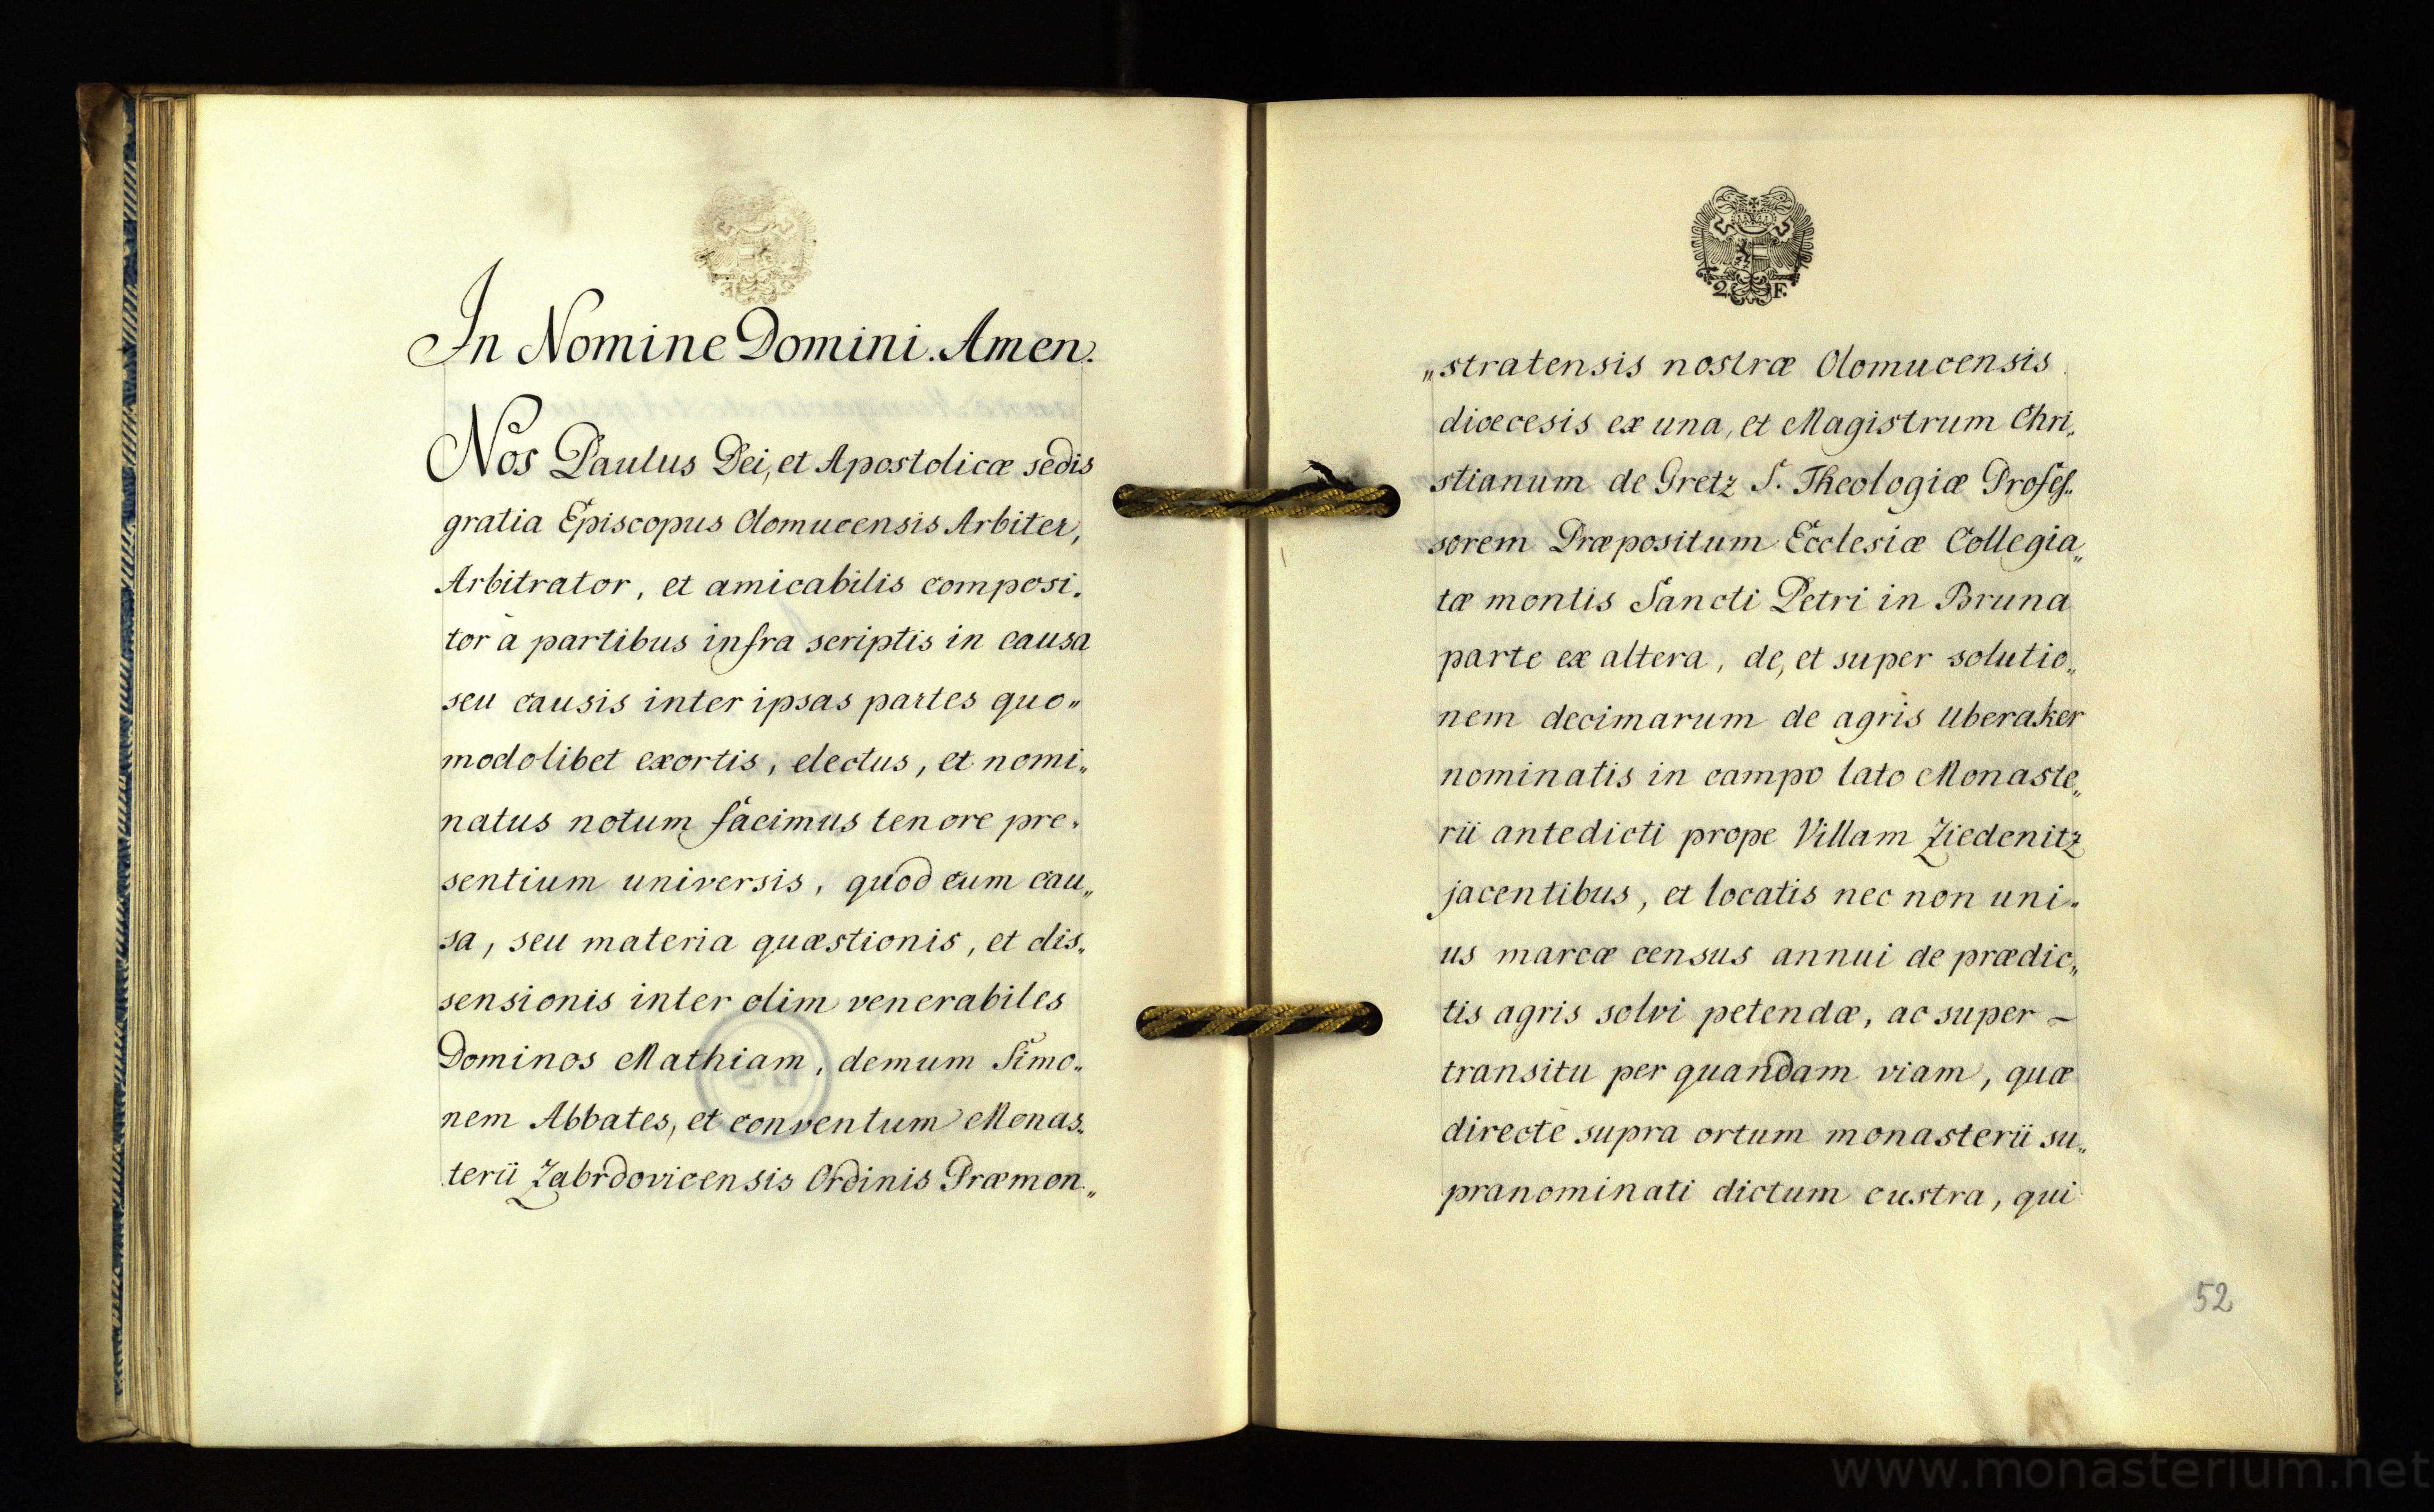 In Nomine Domini. Amen.
Nos Paulus Dei, et Apostolicæ sedis
gratia Episcopus Olomucensis Arbiter,
Arbitrator, et amicabilis composi„
tor à partibus infra scriptis in causa
seu causis inter ipsas partes quo„
modolibet exortis, electus, et nomi„
natus notum facimus tenore pre„
sentium universis, quod cum cau„
sa, seu materia quæstionis, et dis„
sensionis inter olim venerabiles
Dominos Mathiam, demum Simo„
nem Abbates, et conventum Monas„
terii Zabrdovicensis Ordinis Præmon„
„stratensis nostræ Olomucensis
diœcesis ex una, et Magistrum Chri„
stianum de Gretz S. Theologiæ Profes„
sorem Præpositum Ecclesiæ Collegia„
tæ montis Sancti Petri in Bruna
parte ex altera, de, et super solutio„
nem decimarum de agris Uberaker
nominatis in campo lato Monaste„
rii antedicti prope Villam Ziedenitz
jacentibus, et locatis nec non uni„
us marcæ census annui de prædic„
tis agris solvi petendæ, ac super –
transitu per quandam viam, quæ
directè supra ortum monasterii su„
pranominati dictum custra, qui
52
www.monasterium.net